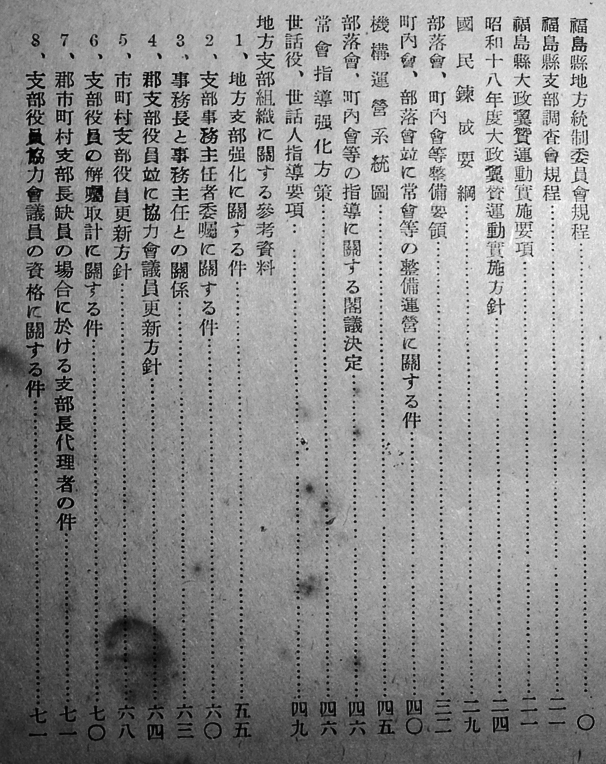 福島縣地方統制委員會規程……〇
福島縣支部調査會規程……二一
福島縣大政翼賛運動實施要項……二一
昭和十八年度大政翼賛運動實施方針……二四
國民錬成要綱……二九
部落會、町內會等整備要領……三二
町內會、部落會竝に常會等の整備運營に關する件……四〇
機構運營系統圖……四五
部落會、町內會等の指導に關する閣議決定……四六
常會指導强化方策……四六
世話役、世話人指導要項……四九
地方支部組織に關する參考資料
1、地方支部强化に關する件……五五
2、支部事務主任者委囑に關する件……六〇
3、事務長と事務主任との關係……六三
4、郡支部役員竝に協力會議員更新方針……六四
5、市町村支部役員更新方針……六八
6、支部役員の解囑取計に關する件……七〇
7、郡市町村支部長缺員の場合に於ける支部長代理者の件……七一
8、支部役員協力會議員の資格に關する件……七一